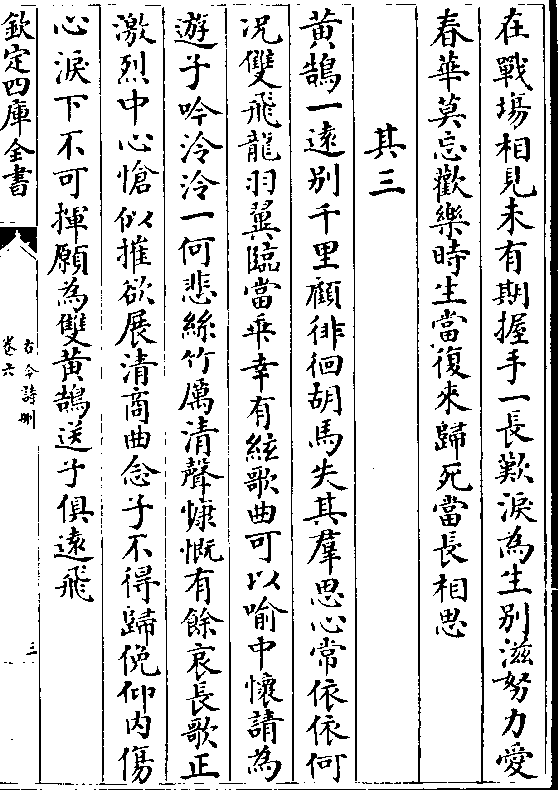 在戰場相見未有期握手一長歎淚為生别滋努力愛
春華莫忘歡樂時生當復來歸死當長相思
其三
黄鵠一遠别千里顧徘徊胡馬失其羣思心常依依何
况雙飛龍羽翼臨當乖幸有絃歌曲可以喻中懷請為
遊子吟泠泠一何悲絲竹厲清聲慷慨有餘哀長歌正
激烈中心愴以摧欲展清商曲念子不得歸俛仰内傷
心淚下不可揮願為雙黄鵠送子俱遠飛
欽定四庫全書
古今詩刪
卷六
三